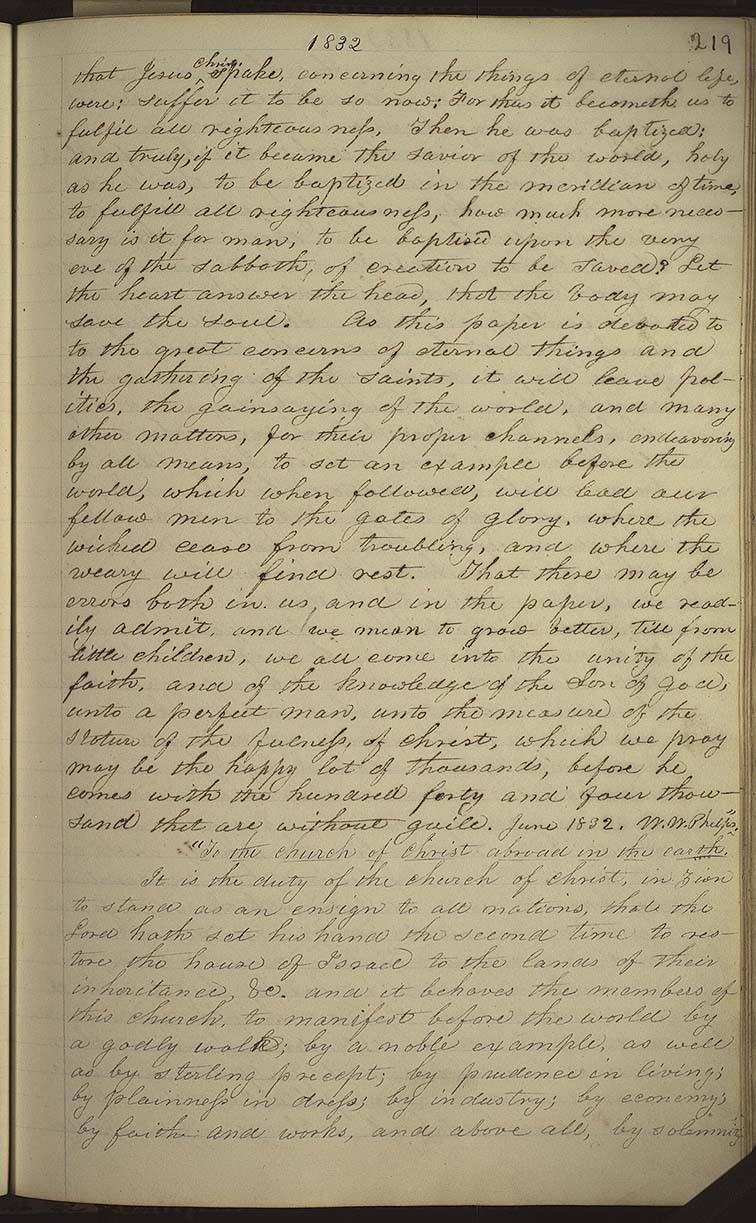 1832 219
that Jesus Christ spake, concerning the things of eternal life,
were: suffer it to be so now: For thus it becometh us to
fulfil all righteousness, Then he was baptized;
and truly, if it became the savior of the world, holy
as he was, to be baptized in the meridian of time,
to fulfill all righteousness, how much more neces-
sary is it for man, to be baptised upon the very
eve of the sabbath, of creation to be saved? Let
the heart answer the head, that the body may
save the soul. As this paper is devoted to
to the great concerns of eternal things and
the gathering of the saints, it will leave pol-
itics, the gainsaying of the world, and many
other matters, for their proper channels, endeavoring
by all means, to set an example before the
world, which when followed, will lead our
fellow men to the gates of glory, where the
wicked cease from troubling, and where the
weary will find rest. That there may be
errors both in us, and in the paper, we read-
ily admit, and we mean to grow better, till from
little children, we all come into the unity of the
faith, and of the knowledge of the Son of God,
unto a perfect man, unto the measure of the
stature of the fulness, of christ, which we pray
may be the happy lot of thousands, before he
comes with the hundred forty and four thou-
sand that are without guile. June 1832. W. W. Phelps."
"To the church of Christ abroad in the earth.
It is the duty of the church of christ, in Zion
to stand as an ensign to all nations, that the
Lord hath set his hand the second time to res-
tore the house of Israel to the lands of their
inheritance, &c. and it behoves the members of
this church, to manifest before the world by
a godly walk; by a noble example, as well
as by sterling precept; by prudence in living;
by plainness in dress; by industry; by economy;
by faith and works, and above all, by solemnity